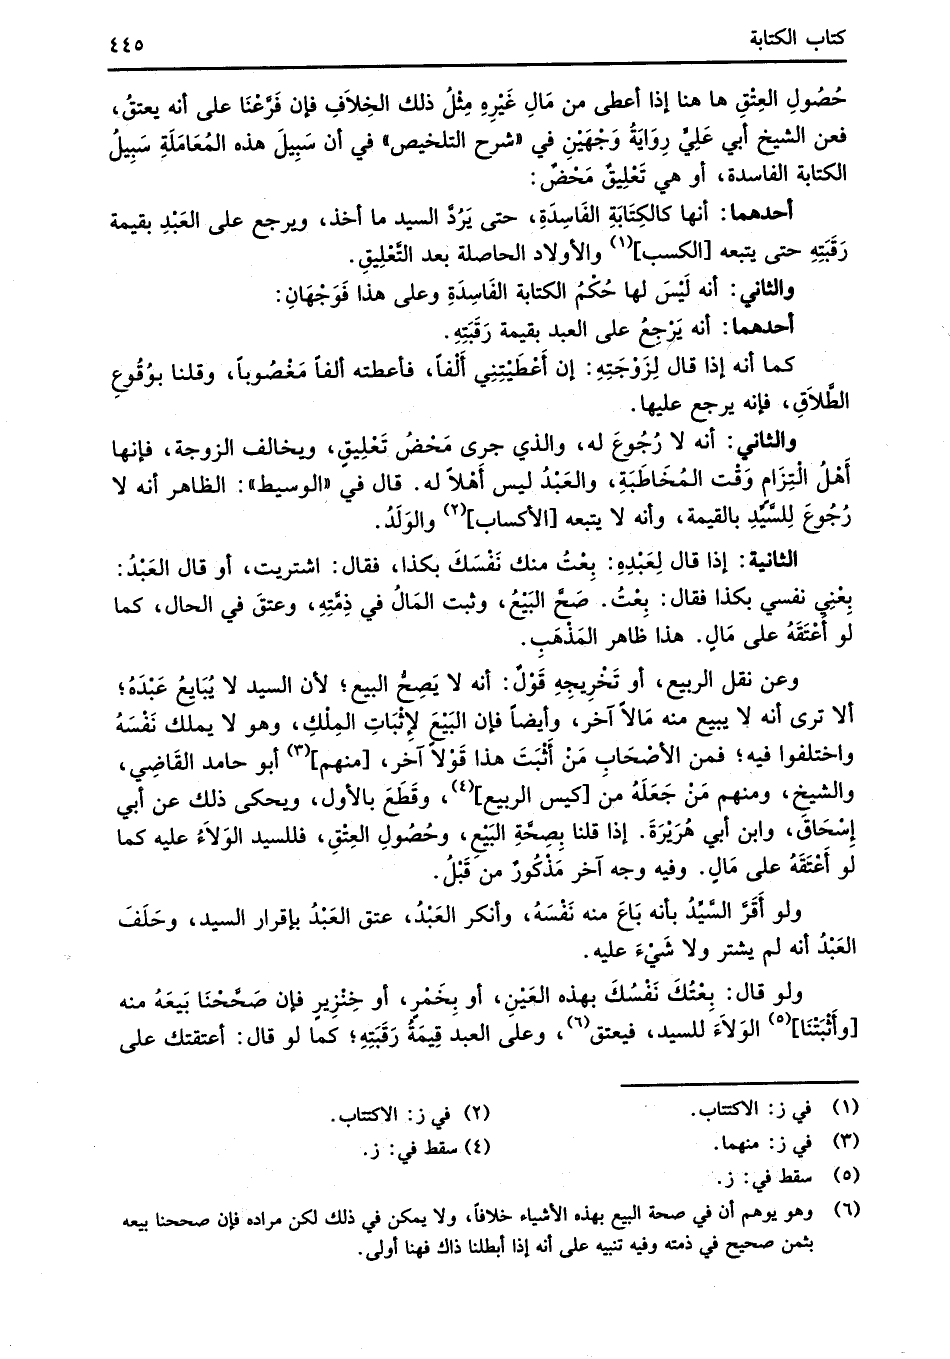 كتاب الكتابة
٤٤٥
حُصُولِ العِتْقِ ها هنا إذا أعطى من مَالِ غَيْرِهِ مِثْلُ ذلك الخِلاَفِ فإن فَرَّعْنَا على أنه يعتقُ،
فعن الشيخ أبي عَلِيِّ رِوَايَةُ وَجْهَيْنِ في «شرح التلخيص» في أن سَبِيلَ هذه المُعَامَلَةِ سَبِيلُ
الكتابة الفاسدة، أو هي تَعْلِيقٌ مَحْضٌ:
أحدهما: أنها كالكِتَابَةِ الفَاسِدَةِ، حتى يَرُدَّ السيد ما أخذ، ويرجع على العَبْدِ بقيمة
رَقَبَتِهِ حتى يتبعه [الكسب](١) والأولاد الحاصلة بعد التَّعْلِيقِ.
والثاني: أنه لَيْسَ لها حُكْمُ الكتابة الفَاسِدَةِ وعلى هذا فَوَجْهَانِ:
أحدهما: أنه يَرْجِعُ على العبد بقيمة رَقَبَتِهِ.
كما أنه إذا قال لِزَوْجَتِهِ: إن أَعْطَيْتِنِي أَلْفاً، فأعطته ألفاً مَغْصُوباً، وقلنا بوُقُوعِ
الطَّلاَقِ، فإنه يرجع عليها.
والثاني: أنه لا رُجُوعَ له، والذي جرى مَحْضُ تَعْلِيقٍ، ويخالف الزوجة، فإنها
أَهْلُ الْتِزَامٍ وَقْت المُخَاطَبَةِ، والعَبْدُ ليس أَهْلاً له. قال في «الوسيط»: الظاهر أنه لا
رُجُوعَ لِلسَّيِّدِ بالقيمة، وأنه لا يتبعه [الأكساب](٢) والوَلَدُ.
الثانية: إذا قال لِعَبْدِهِ: بِعْتُ منك نَفْسَكَ بكذا، فقال: اشتريت، أو قال العَبْدُ:
بِعْنِي نفسي بكذا فقال: بِعْتُ. صَحَّ البَيْعُ، وثبت المَالُ في ذِمَّتِهِ، وعتقَ في الحال، كما
لو أَعْتَقَهُ على مَالٍ. هذا ظاهر المَذْهَبِ.
وعن نقل الربيع، أو تَخْرِيجِهِ قَوْلٌ: أنه لا يَصِحُّ البيع؛ لأن السيد لا يُبَايِعُ عَبْدَهُ؛
ألا ترى أنه لا يبيع منه مَالاً آخر، وأيضاً فإن البَيْعَ لإِثْبَاتِ المِلْكِ، وهو لا يملك نَفْسَهُ
واختلفوا فيه؛ فمن الأَصْحَابِ مَنْ أَثْبَتَ هذا قَوْلاً آخر، [منهم](٣) أبو حامد القَاضِي،
والشيخ، ومنهم مَنْ جَعَلَهُ من [كيس الربيع](٤)، وقَطَعَ بالأول، ويحكى ذلك عن أبي
إِسْحَاقَ، وابن أبي هُرَيْرَةَ. إذا قلنا بِصِحَّةِ البَيْعِ، وحُصُولِ العِتْقِ، فللسيد الوَلاَءُ عليه كما
لو أَعْتَقَهُ على مَالٍ. وفيه وجه آخر مَذْكُورٌ من قَبْلُ.
ولو أَقَرَّ السَّيِّدُ بأنه بَاعَ منه نَفْسَهُ، وأنكر العَبْدُ، عتق العَبْدُ بإقرار السيد، وحَلَفَ
العَبْدُ أنه لم يشتر ولا شَيْءَ عليه.
ولو قال: بِعْتُكَ نَفْسُكَ بهذه العَيْنِ، أو بِخَمْرٍ، أو خِنْزِيرٍ فإن صَحَّحْنَا بَيعَهُ منه
[وأَثْبَتْنَا](٥) الوَلاَءَ للسيد، فيعتق(٦)، وعلى العبد قِيمَةُ رَقَبَتِهِ؛ كما لو قال: أعتقتك على
(١) في ز: الاكتتاب.
(٢) في ز: الاكتتاب.
(٣) في ز: منهما.
(٤) سقط في: ز.
(٥) سقط في: ز.
(٦) وهو يوهم أن في صحة البيع بهذه الأشياء خلافاً، ولا يمكن في ذلك لكن مراده فإن صححنا بيعه
بثمن صحيح في ذمته وفيه تنبيه على أنه إذا أبطلنا ذاك فهنا أولى.